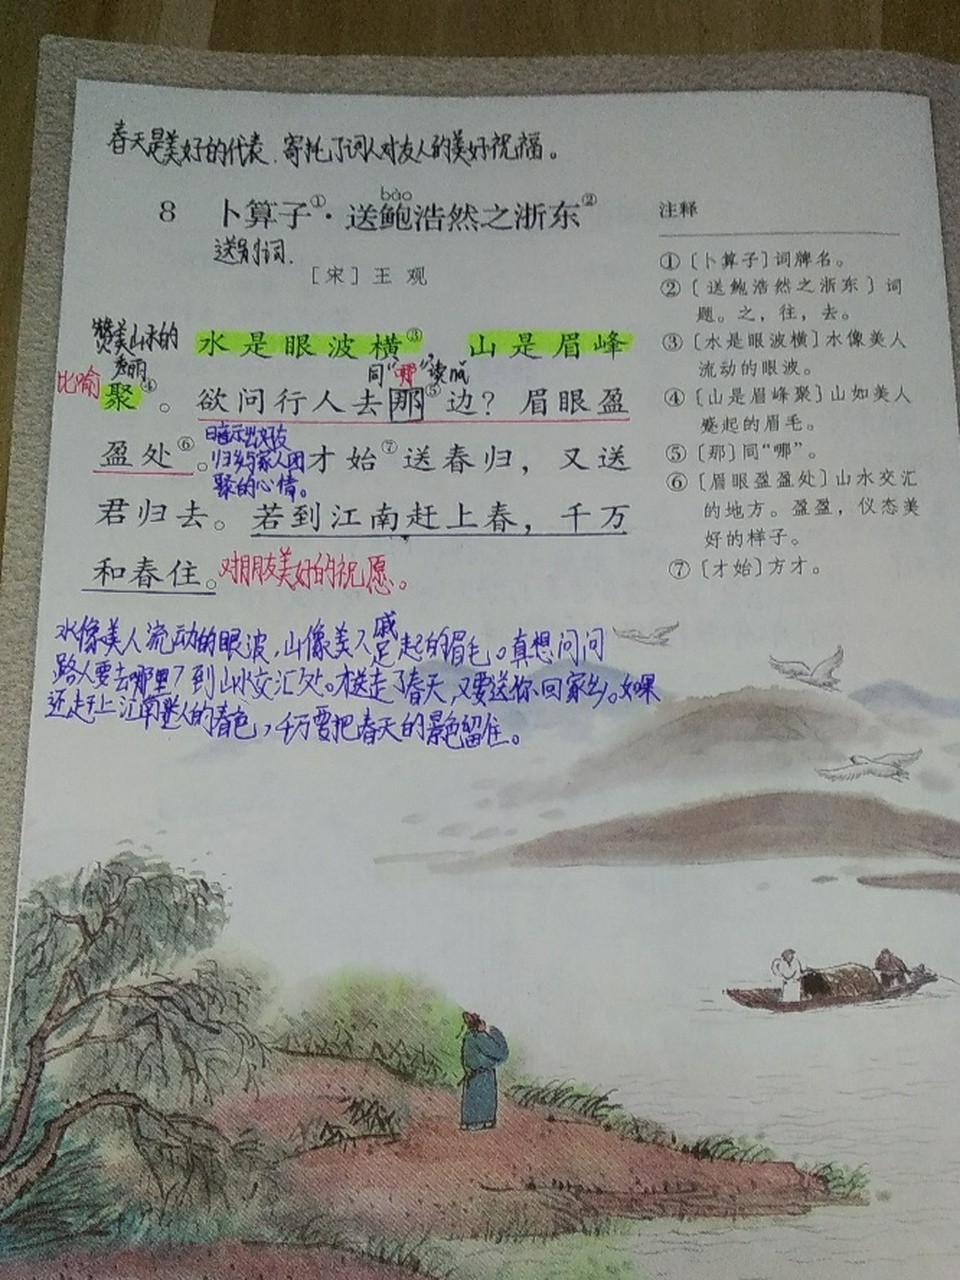 春天是美好的代表.寄托了词人对友人的美好祝福。
bào
8 卜算子①·送鲍浩然之浙东②
送别词.
[宋] 王 观
赞美山水的
秀丽
水是眼波横③ 山是眉峰
比喻
同“哪”读成
聚④。欲问行人去那⑤边？眉眼盈
盈处⑥。才始⑦送春归，又送
暗示出好友
归乡与家人团
聚的心情。
君归去。若到江南赶上春，千万
和春住。对朋友美好的祝愿。
水像美人流动的眼波,山像美人蹙起的眉毛。真想问问
路人要去哪里?到山水交汇处。才送走了春天,又要送你回家乡。如果
还赶上江南迷人的春色,千万要把春天的景色留住。
注释
①〔卜算子〕词牌名。
②〔送鲍浩然之浙东〕词
题。之，往，去。
③〔水是眼波横〕水像美人
流动的眼波。
④〔山是眉峰聚〕山如美人
蹙起的眉毛。
⑤〔那〕同“哪”。
⑥〔眉眼盈盈处〕山水交汇
的地方。盈盈，仪态美
好的样子。
⑦〔才始〕方才。